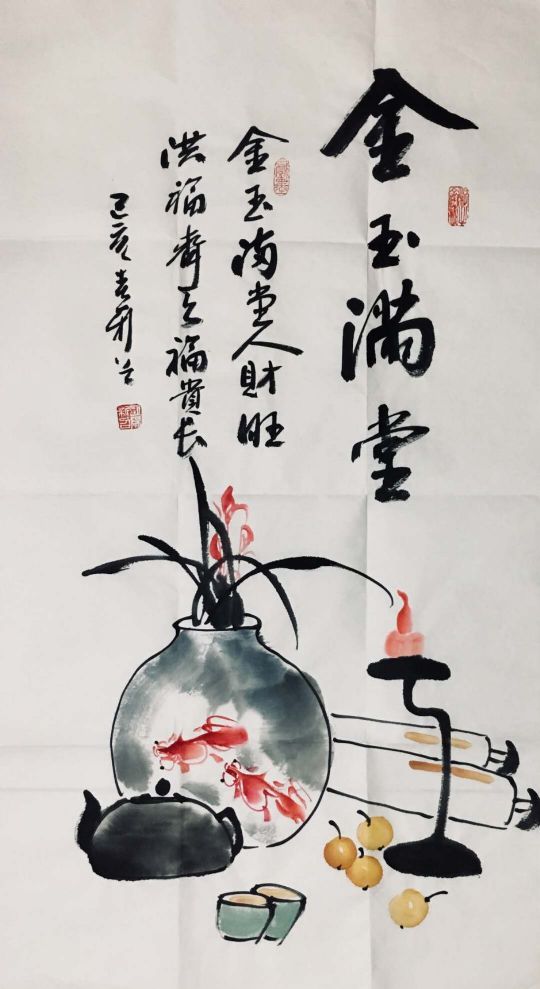 金玉满堂
金玉满堂人财旺
洪福齐天福贵长
己亥春利